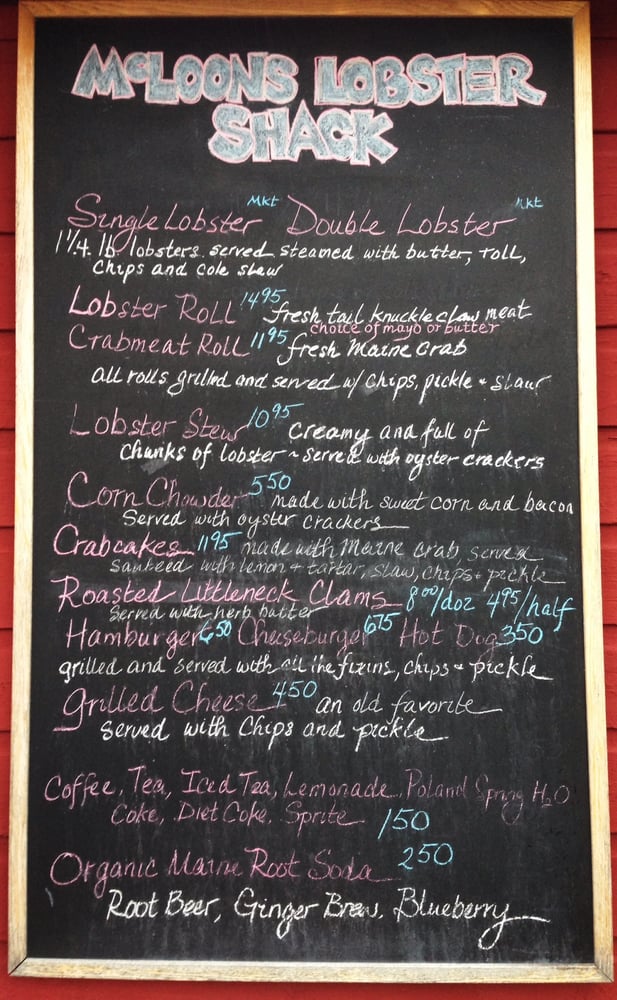 McLOONS LOBSTER
SHACK
Single Lobster Mkt Double Lobster Mkt
1 1/4. lb. lobsters served steamed with butter, roll,
chips and cole slaw
Lobster Roll 14 95 fresh tail knuckle claw meat
choice of mayo or butter
Crabmeat Roll 11 95 fresh Maine Crab
all rolls grilled and served w/ chips, pickle + slaw
Lobster Stew 10 95 Creamy and full of
chunks of lobster ~ served with oyster crackers
Corn Chowder 5 50 made with sweet corn and bacon
Served with oyster crackers
Crabcakes 11 95 made with Maine crab served
sauteed with lemon + tartar, slaw, chips + pickle
Roasted Littleneck Clams 8 00/doz 4 95/half
Served with herb butter
Hamburger 6 50 Cheeseburger 6 75 Hot Dog 3 50
grilled and served with all the fixins, chips + pickle
Grilled Cheese 4 50 an old favorite
Served with Chips and pickle
Coffee, Tea, Iced Tea, Lemonade, Poland Spring H2O
Coke, Diet Coke, Sprite 1 50
Organic Maine Root Soda 2 50
Root Beer, Ginger Brew, Blueberry